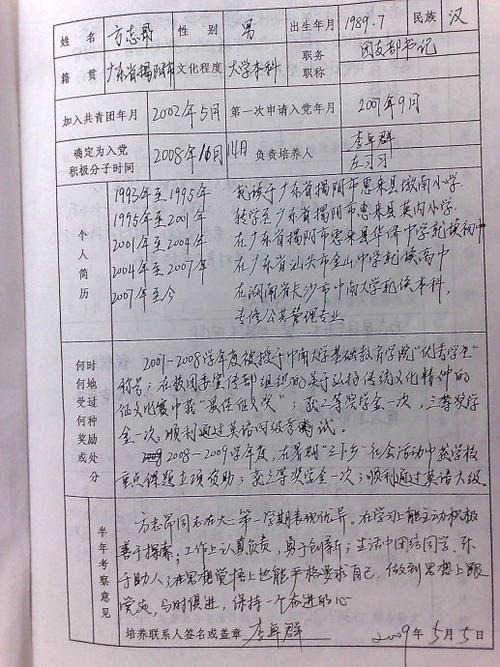 姓名 方志昂 性别 男 出生年月 1989.7 民族 汉
籍贯 广东省揭阳市 文化程度 大学本科 职务职称 团支部书记
加入共青团年月 2002年5月 第一次申请入党年月 2007年9月
确定为入党积极分子时间 2008年10月14日 负责培养人 李卓群
左习习
个人简历
1993年至1995年 就读于广东省揭阳市惠来县城南小学
1995年至2001年 转学至广东省揭阳市惠来县英内小学
2001年至2004年 在广东省揭阳市惠来县华侨中学就读初中
2004年至2007年 在广东省汕头市金山中学就读高中
2007年至今 在湖南省长沙市中南大学就读本科,
专修公共管理专业
何时何地受过何种奖励或处分
2007-2008学年度被授于中南大学基础教育学院"优秀学生"
称号;在校团委宣传部组织的关于弘扬传统文化精神的
征文比赛中获"最佳征文奖";获二等奖学金一次,三等奖学
金一次,顺利通过英语四级考试。
2008-2009学年度,在暑期"三下乡"社会活动中获学校
重点课题立项资助;获三等奖学金一次;顺利通过英语六级
半年考察意见
方志昂同志在大二第一学期表现优异。在学习上能主动积极
善于探索;工作上认真负责,勇于创新;生活中团结同学,乐
于助人;在思想觉悟上也能严格要求自己,做到思想上跟
党走,与时俱进,保持一个奋进的心
培养联系人签名或盖章 李卓群 2009年5月5日